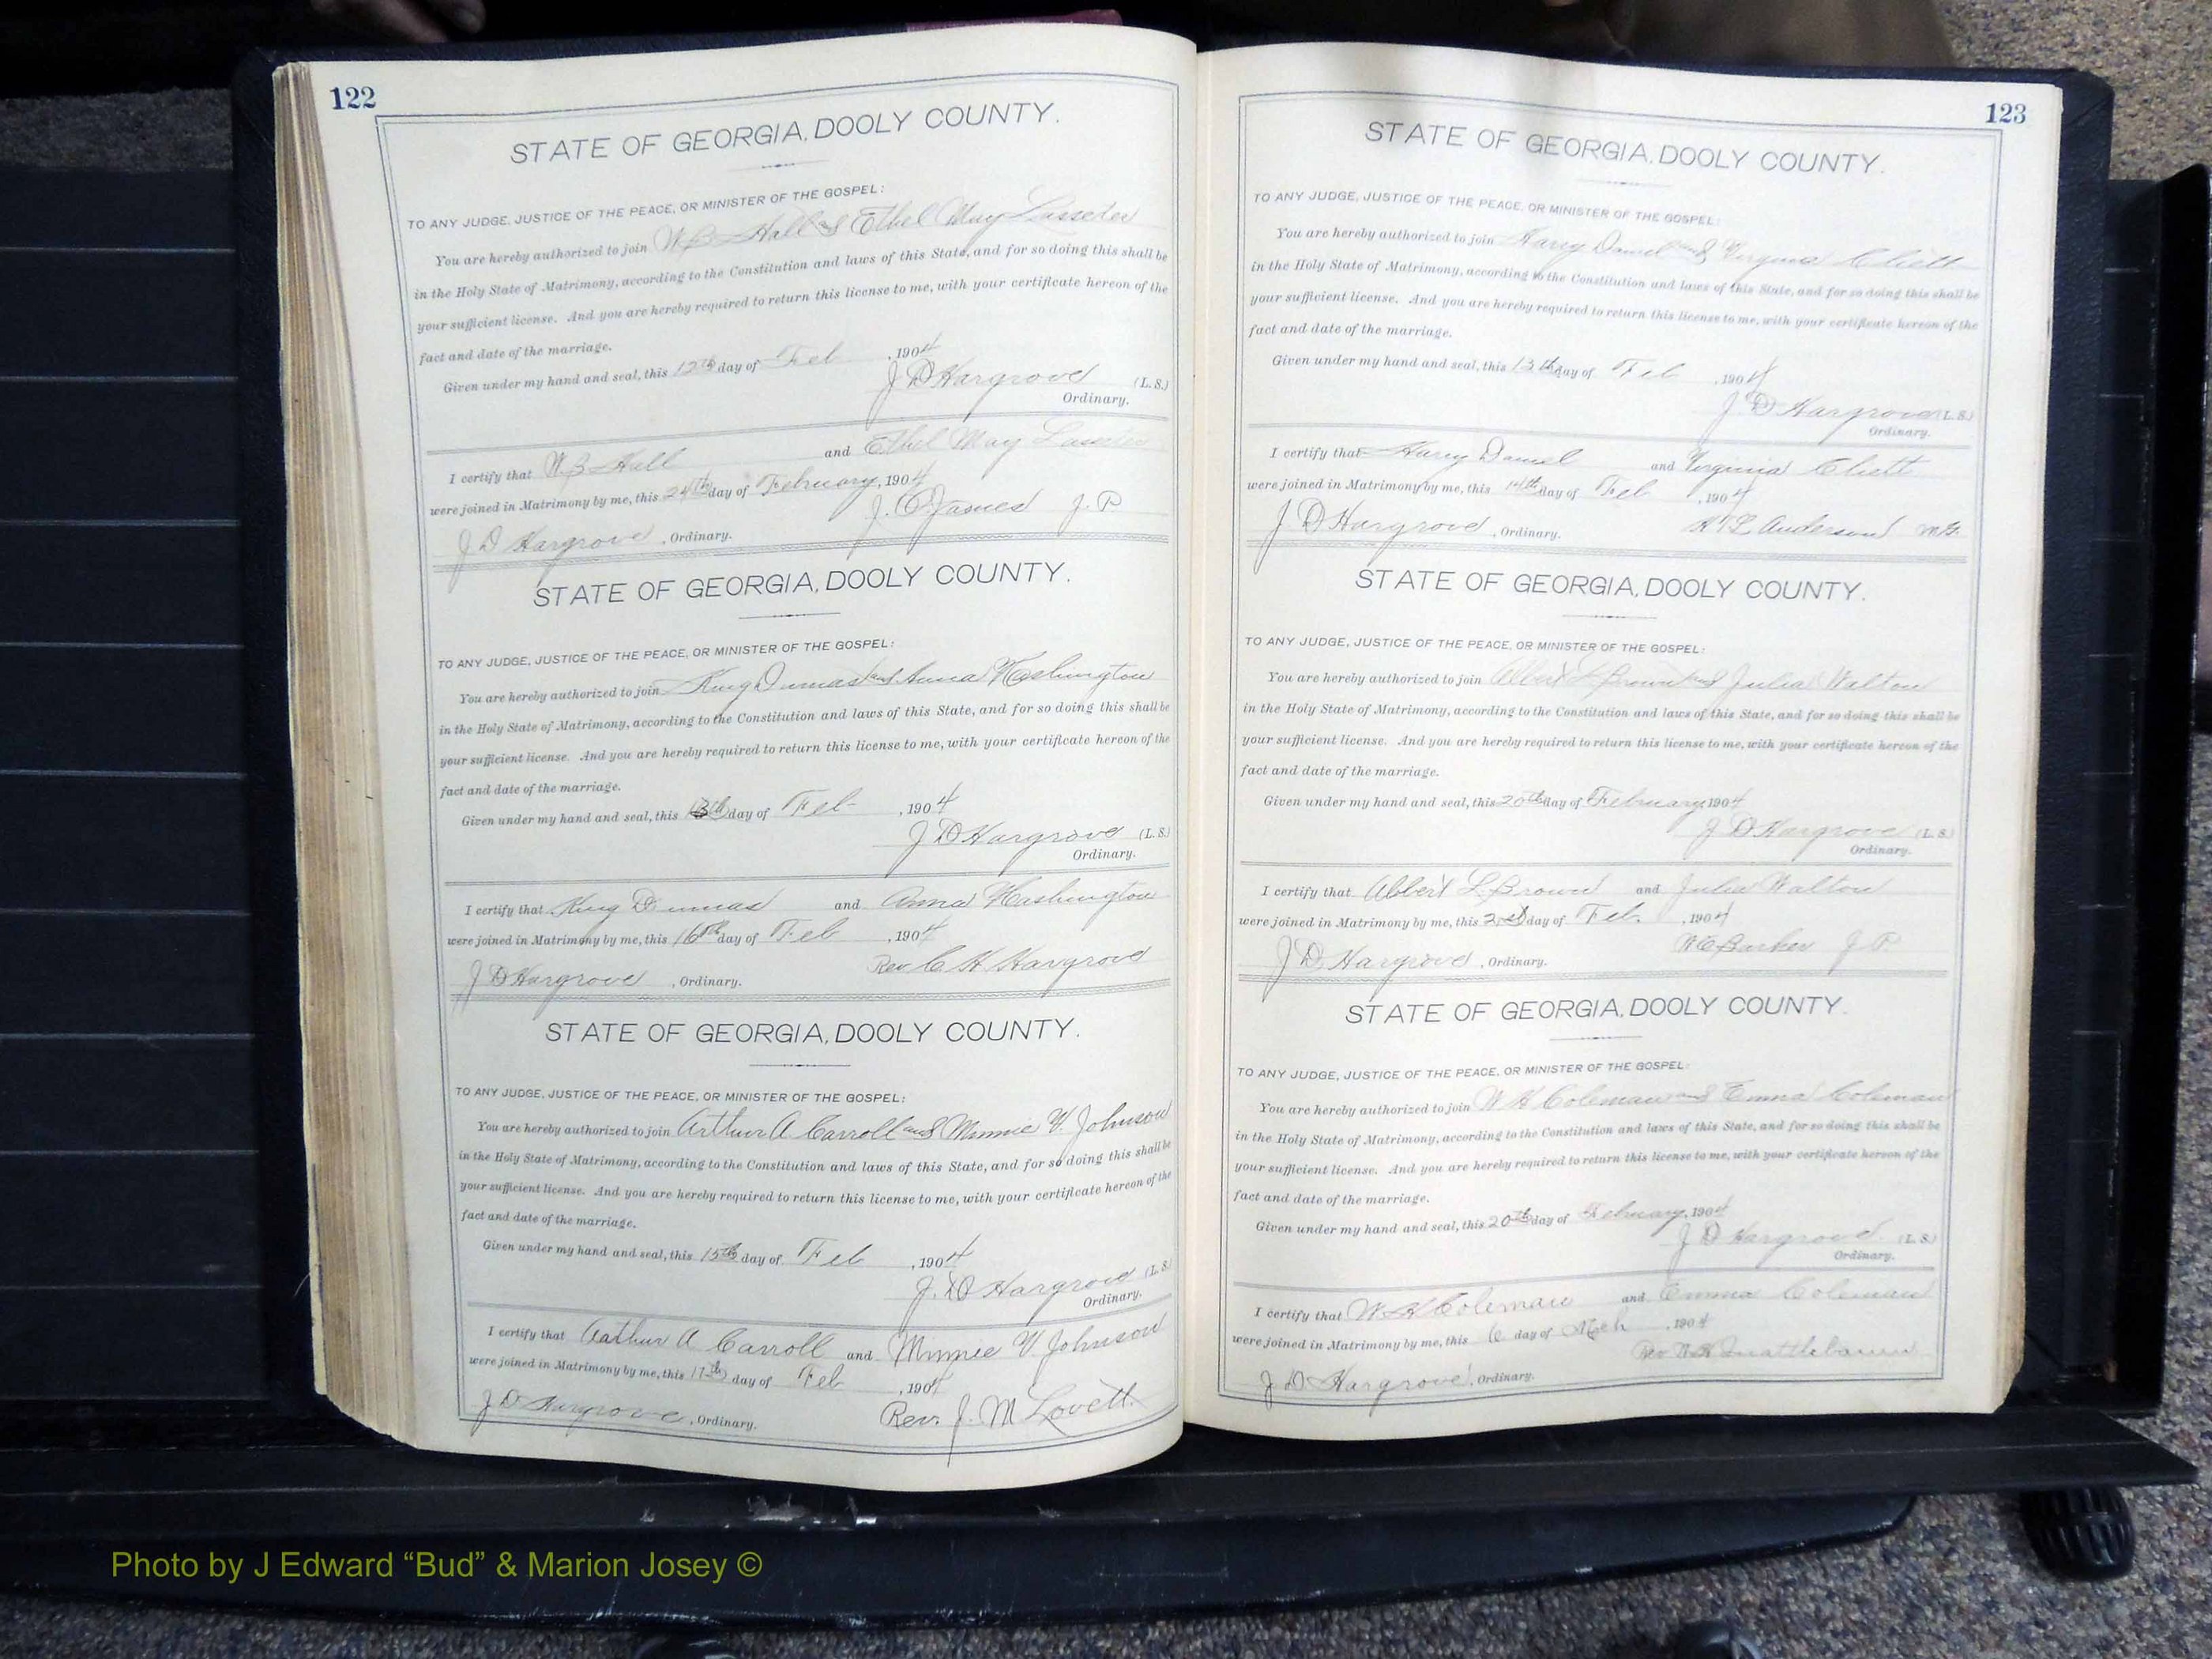 122
STATE OF GEORGIA, DOOLY COUNTY.
TO ANY JUDGE, JUSTICE OF THE PEACE, OR MINISTER OF THE GOSPEL:
You are hereby authorized to join W B Hall and Ethel May Lasseter
in the Holy State of Matrimony, according to the Constitution and laws of this State, and for so doing this shall be
your sufficient license. And you are hereby required to return this license to me, with your certificate hereon of the
fact and date of the marriage.
Given under my hand and seal, this 12th day of Feb , 1904
J D Hargrove (L. S.)
Ordinary.
I certify that W B Hall and Ethel May Lasseter
were joined in Matrimony by me, this 24th day of February, 1904
J. O. James J. P
J D Hargrove , Ordinary.
STATE OF GEORGIA, DOOLY COUNTY.
TO ANY JUDGE, JUSTICE OF THE PEACE, OR MINISTER OF THE GOSPEL:
You are hereby authorized to join King Dumas and Anna Washington
in the Holy State of Matrimony, according to the Constitution and laws of this State, and for so doing this shall be
your sufficient license. And you are hereby required to return this license to me, with your certificate hereon of the
fact and date of the marriage.
Given under my hand and seal, this 13th day of Feb , 1904
J D Hargrove (L. S.)
Ordinary.
I certify that King Dumas and Anna Washington
were joined in Matrimony by me, this 16th day of Feb , 1904
Rev C H Hargrove
J D Hargrove , Ordinary.
STATE OF GEORGIA, DOOLY COUNTY.
TO ANY JUDGE, JUSTICE OF THE PEACE, OR MINISTER OF THE GOSPEL:
You are hereby authorized to join Arthur A Carroll and Minnie V. Johnson
in the Holy State of Matrimony, according to the Constitution and laws of this State, and for so doing this shall be
your sufficient license. And you are hereby required to return this license to me, with your certificate hereon of the
fact and date of the marriage.
Given under my hand and seal, this 15th day of Feb , 1904
J. D Hargrove (L. S.
Ordinary.
I certify that Arthur A Carroll and Minnie V Johnson
were joined in Matrimony by me, this 17th day of Feb , 1904
J D Hargrove , Ordinary. Rev. J. M Lovett.
123
STATE OF GEORGIA, DOOLY COUNTY.
TO ANY JUDGE, JUSTICE OF THE PEACE, OR MINISTER OF THE GOSPEL:
You are hereby authorized to join Harry Daniel and Virginia Cliett
in the Holy State of Matrimony, according to the Constitution and laws of this State, and for so doing this shall be
your sufficient license. And you are hereby required to return this license to me, with your certificate hereon of the
fact and date of the marriage.
Given under my hand and seal, this 13th day of Feb , 1904
J. D Hargrove (L. S.)
Ordinary.
I certify that Harry Daniel and Virginia Cliett
were joined in Matrimony by me, this 14th day of Feb , 1904
Anderson M.G.
J D Hargrove , Ordinary.
STATE OF GEORGIA, DOOLY COUNTY.
TO ANY JUDGE, JUSTICE OF THE PEACE, OR MINISTER OF THE GOSPEL:
You are hereby authorized to join Albert L Brown and Julia Walton
in the Holy State of Matrimony, according to the Constitution and laws of this State, and for so doing this shall be
your sufficient license. And you are hereby required to return this license to me, with your certificate hereon of the
fact and date of the marriage.
Given under my hand and seal, this 20th day of February 1904
J D Hargrove (L. S.)
Ordinary.
I certify that Albert L. Brown and Julia Walton
were joined in Matrimony by me, this day of Feb. , 1904
W C Barker J P.
J D Hargrove , Ordinary.
STATE OF GEORGIA, DOOLY COUNTY.
TO ANY JUDGE, JUSTICE OF THE PEACE, OR MINISTER OF THE GOSPEL:
You are hereby authorized to join W H Coleman and Emma Coleman
in the Holy State of Matrimony, according to the Constitution and laws of this State, and for so doing this shall be
your sufficient license. And you are hereby required to return this license to me, with your certificate hereon of the
fact and date of the marriage.
Given under my hand and seal, this 20th day of February, 1904
J D Hargrove. (L. S.)
Ordinary.
I certify that W. H Coleman and Emma Coleman
were joined in Matrimony by me, this 6 day of Mch , 1904
Rev Quattlebaum
J D Hargrove , Ordinary.
Photo by J Edward “Bud” & Marion Josey ©